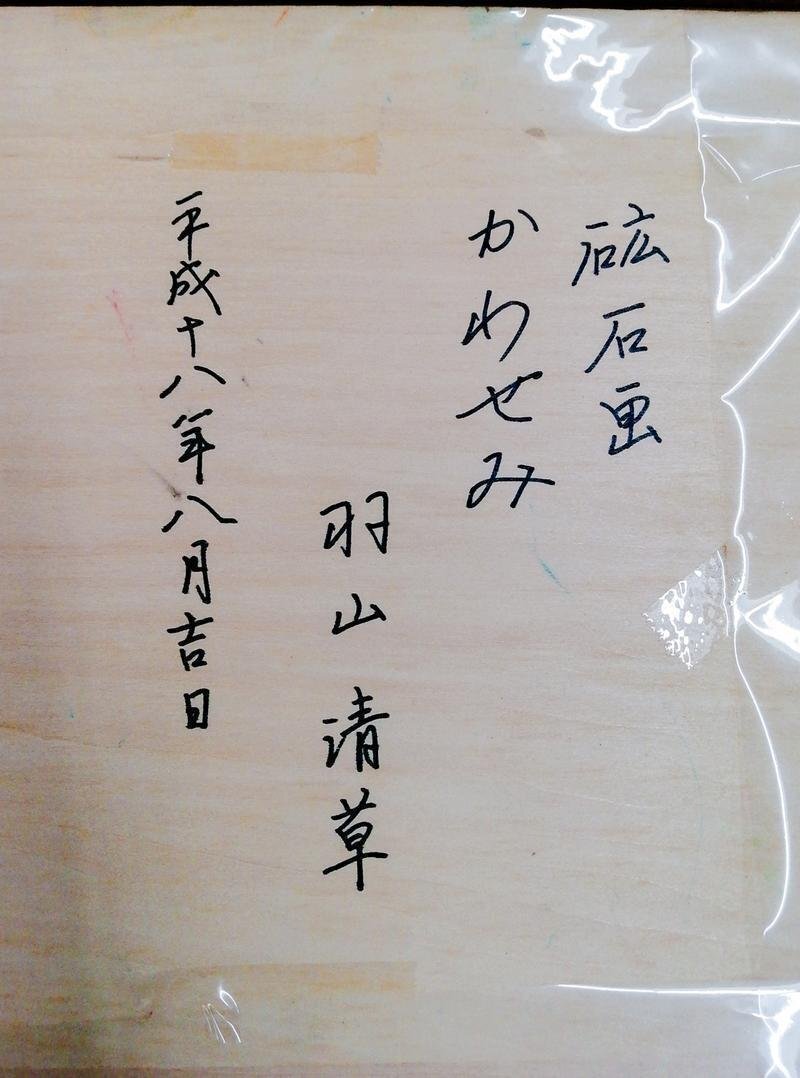 砿石画
かわせみ
羽山清草
平成十八年八月吉日